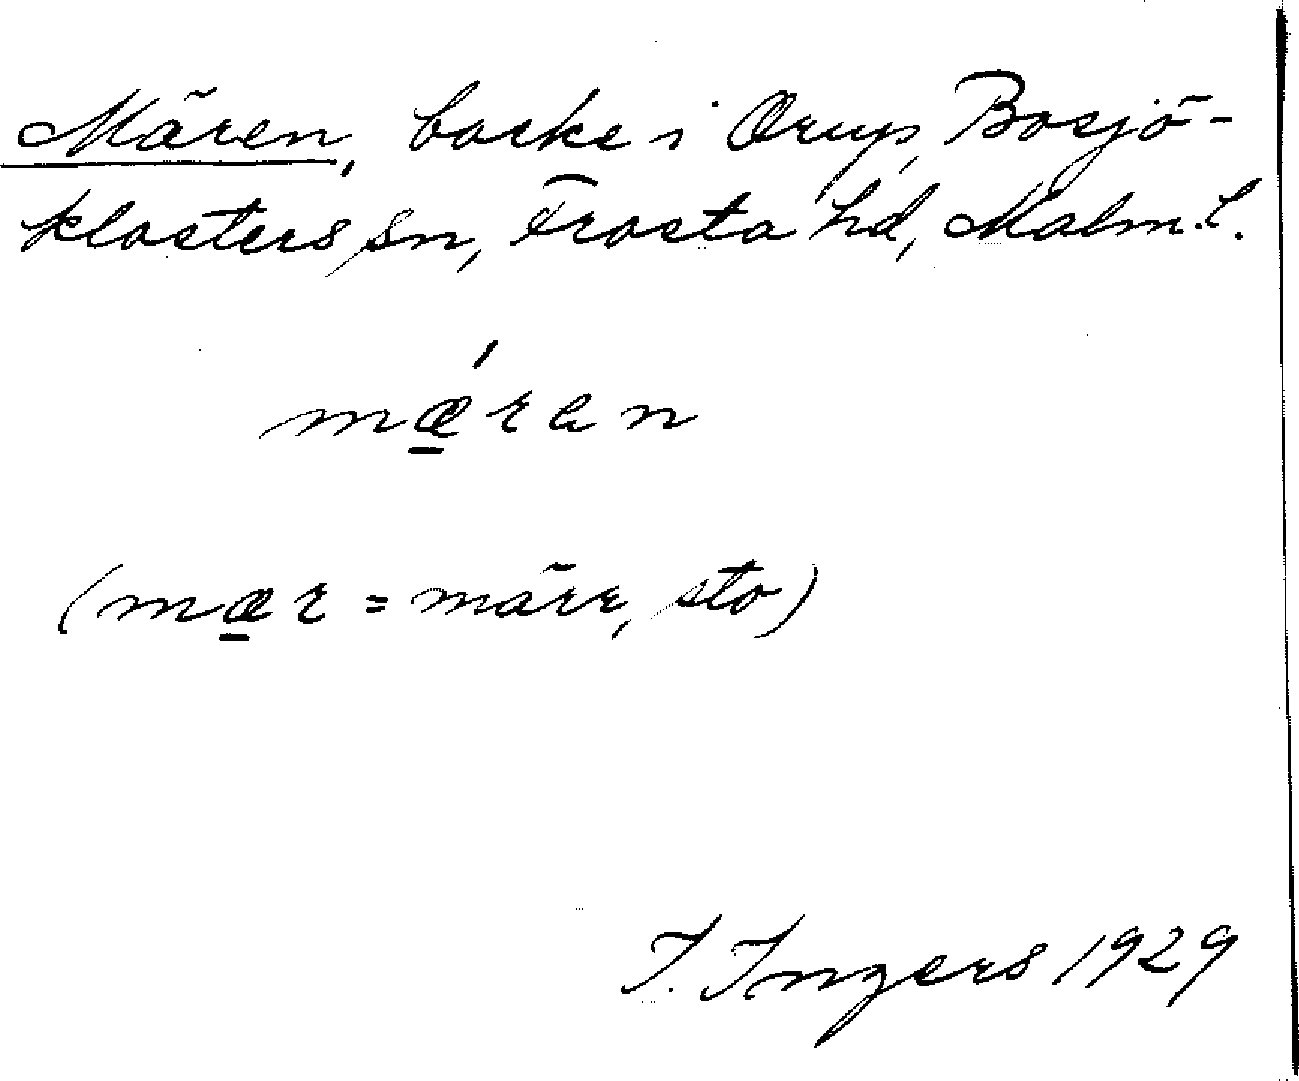 Mären, backe i Orup, Bosjö-
klosters sn, Frosta hd, Malm.l.
mǽ̱ran
(mæ̱r = märr, sto)
I. Ingers 1929